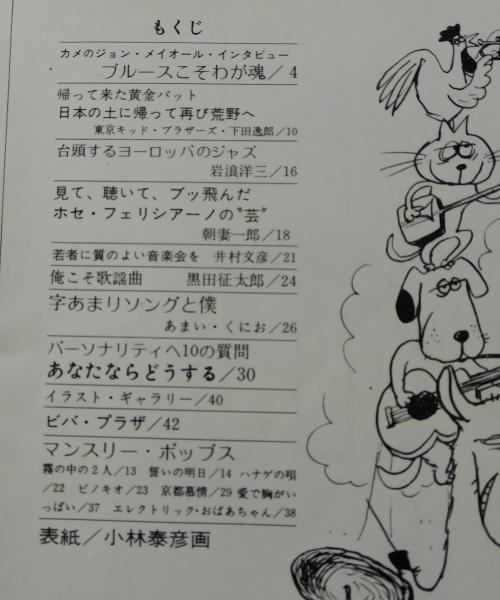 もくじ
カメのジョン・メイオール・インタビュー
ブルースこそわが魂／4
帰って来た黄金バット
日本の土に帰って再び荒野へ
東京キッド・ブラザーズ・下田逸郎／10
台頭するヨーロッパのジャズ
岩浪洋三／16
見て、聴いて、ブッ飛んだ
ホセ・フェリシアーノの〝芸〟
朝妻一郎／18
若者に質のよい音楽会を 井村文彦／21
俺こそ歌謡曲 黒田征太郎／24
字あまりソングと僕
あまい・くにお／26
パーソナリティへ10の質問
あなたならどうする／30
イラスト・ギャラリー／40
ビバ・プラザ／42
マンスリー・ポップス
霧の中の2人／13 誓いの明日／14 ハナゲの唄
／22 ピノキオ／23 京都慕情／29 愛で胸がい
っぱい／37 エレクトリック・おばあちゃん／38
表紙／小林泰彦画